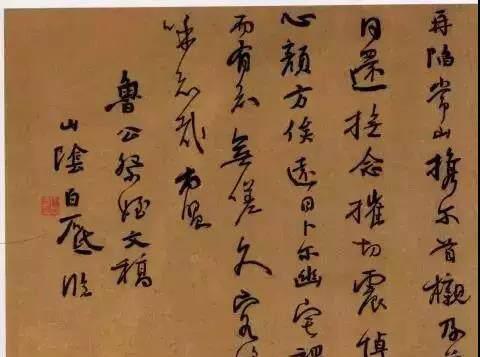 再陷常山攜尔首櫬及
同還撫念摧切震悼
心顏方俟遠日卜尔幽宅魂
而有知無嗟久客嗚
呼哀哉尚饗
魯公祭姪文稿
山陰白砥臨